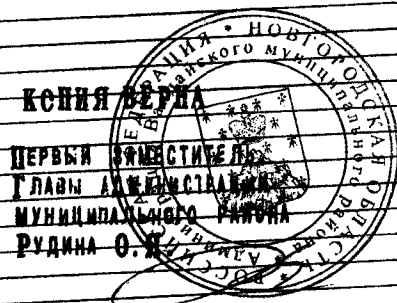 КОПИЯ ВЕРНА
ПЕРВЫЙ ЗАМЕСТИТЕЛЬ
ГЛАВЫ АДМИНИСТРАЦИИ
МУНИЦИПАЛЬНОГО РАЙОНА
РУДИНА О.Я.
РОССИЙСКАЯ ФЕДЕРАЦИЯ * НОВГОРОДСКАЯ ОБЛАСТЬ *
Администрация Валдайского муниципального района